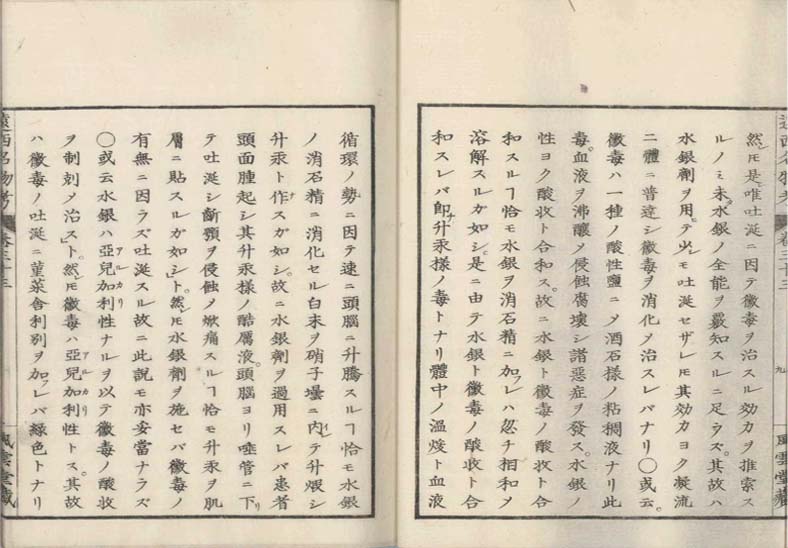 然𪜈是唯吐涎ニ因テ黴毒ヲ治スル効力ヲ推索ス
ルノミ未水銀ノ全能ヲ覈知スルニ足ラズ。其故ハ
水銀劑ヲ用テ少𪜈吐涎セザレ𪜈其効力ヨク凝流
二體ニ普達シ黴毒ヲ消化〆治スレバナリ〇或云。
黴毒ハ一種ノ酸性鹽ニ〆酒石様ノ粘稠液ナリ此
毒。血液ヲ沸釀〆侵蝕腐壊シ諸惡症ヲ發ス。水銀ノ
性ヨク酸收ト合和ス。故ニ水銀ト黴毒ノ酸收ト合
和スルヿ恰モ水銀ヲ消石精ニ加フレハ忽チ相和〆
溶解スルガ如シ。是ニ由テ水銀ト黴毒ノ酸收ト合
和スレバ即チ升汞様ノ毒トナリ體中ノ温煖ト血液
循環ノ勢ニ因テ速ニ頭腦ニ升騰スルヿ恰モ水銀
ノ消石精ニ消化セル白末ヲ硝子壜ニ内レテ升煅シ
升汞ト作スガ如シ。故ニ水銀劑ヲ過用スレバ患者
頭面腫起シ其升汞様ノ酷厲液。頭腦ヨリ唾管ニ下リ
テ吐涎シ齗顎ヲ侵蝕〆焮痛スルヿ恰モ升汞ヲ肌
膚ニ貼スルガ如シト。然𪜈水銀劑ヲ施セバ黴毒ノ
有無ニ因ラズ吐涎スル故ニ此説モ亦妥當ナラズ
〇或云水銀ハ亞兒加利性ナルヲ以テ黴毒ノ酸收
アルカリ
ヲ制剋〆治スト。然𪜈黴毒ハ亞兒加利性トス。其故
アルカリ
ハ黴毒ノ吐涎ニ菫菜舎利別ヲ加フレバ緑色トナリ
遠西名物考 卷三十三 風雲堂藏
九